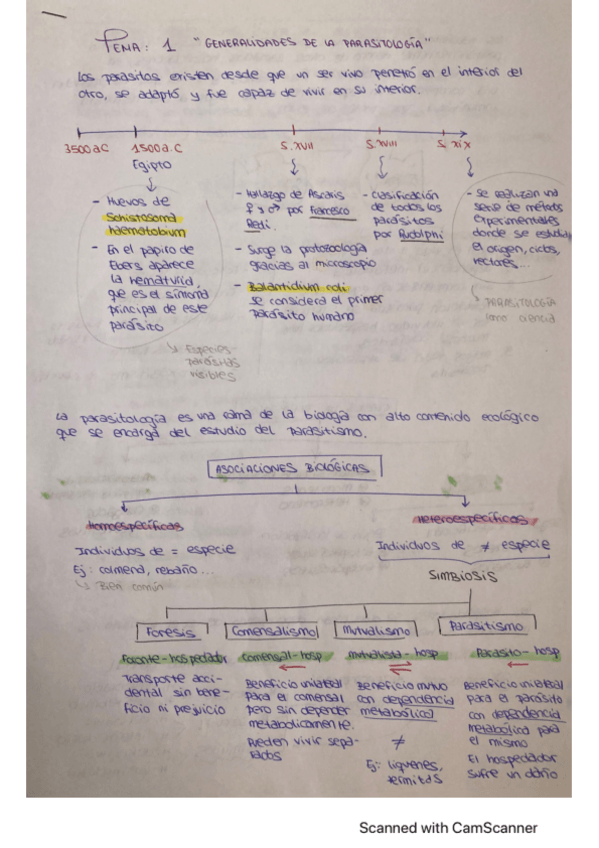 TEMA: 1 "GENERALIDADES DE LA PARASITOLOGÍA"
Los parásitos existen desde que un ser vivo penetró en el interior del
otro, se adaptó y fue capaz de vivir en su interior.
3500 a C
1500 a. C
S. XVII
S. XVIII
S. XIX
Egipto
- Huevos de
Schistosoma
haematobium
- En el papiro de
Ebers aparece
la hematuria,
que es el síntoma
principal de este
parásito
- Hallazgo de Ascaris
♀ y ♂ por Francesco
Redi.
- Surge la protozoología
gracias al microscopio
- Balantidium coli
se considera el primer
parásito humano
- Clasificación
de todos los
parásitos
por Rudolphi
- Se realizan una
serie de métods
experimentales
donde se estudia
el origen, ciclos,
vectores...
PARASITOLOGÍA
como ciencia
Especies
parásitas
visibles
La parasitología es una rama de la biología con alto contenido ecológico
que se encarga del estudio del parasitismo.
ASOCIACIONES BIOLÓGICAS
Homoespecíficas
Heteroespecíficas
Individuos de = especie
Ej: colmena, rebaño...
Bien común
Individuos de ≠ especie
SIMBIOSIS
Foresis
Comensalismo
Mutualismo
Parasitismo
Foronte-hospedador
Comensal-hosp
mutualista-hosp
Parásito-hosp
Transporte acci-
dental sin bene-
ficio ni prejuicio
Beneficio unilateral
para el comensal
pero sin depender
metabolicamente.
Pueden vivir sepa-
rados
Beneficio mutuo
con dependencia
metabólica
≠
Ej: líquenes,
termitas
Beneficio unilateral
para el parásito
con dependencia
metabólica para
el mismo
El hospedador
sufre un daño
Scanned with CamScanner